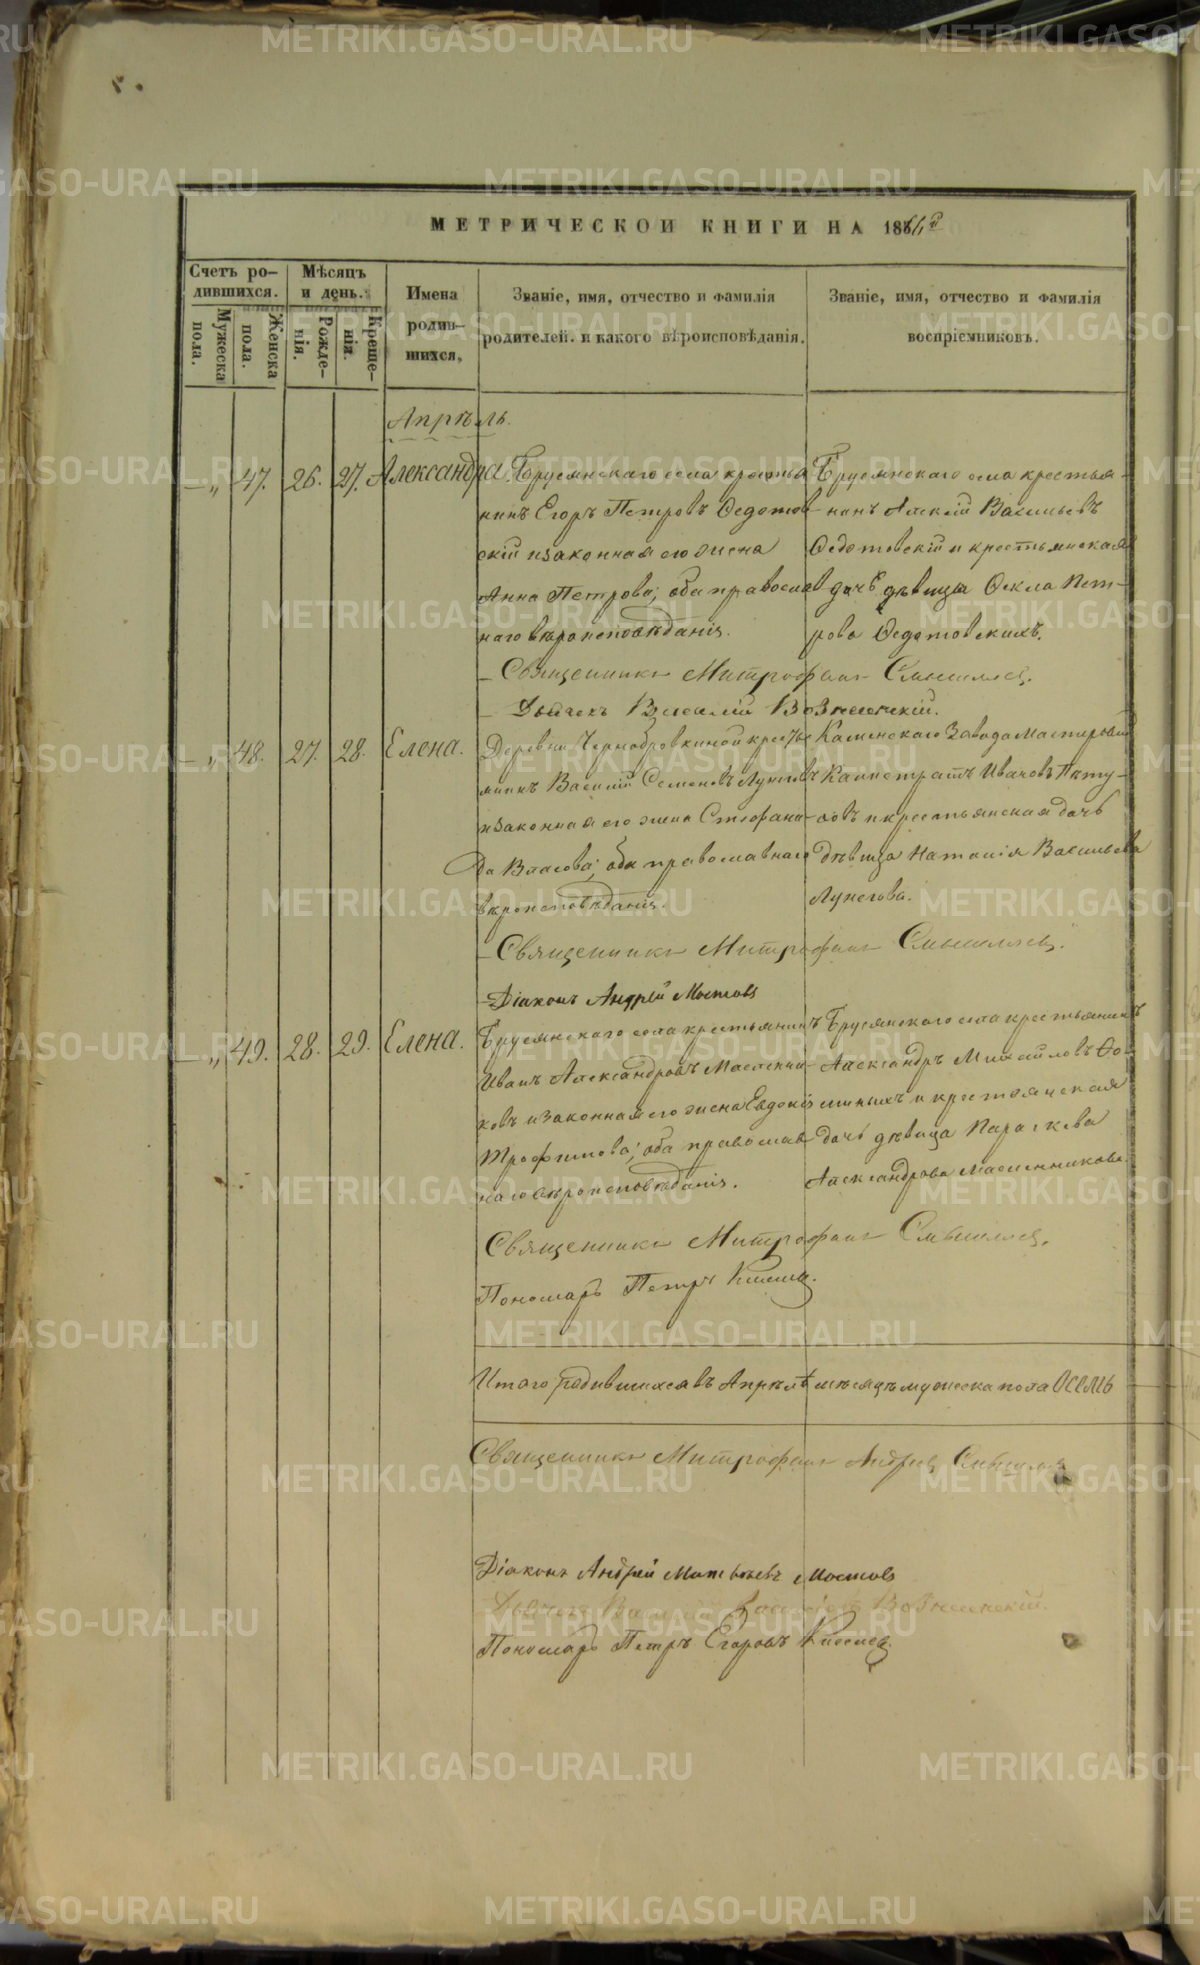 МЕТРИЧЕСКОЙ КНИГИ НА 1866й
Счетъ родившихся.
Мужеска пола.
Женска пола.
Мѣсяцъ и день.
Рожденія.
Крещенія.
Имена родившихся.
Званіе, имя, отчество и фамилія родителей. и какого вѣроисповѣданія.
Званіе, имя, отчество и фамилія воспріемниковъ.
Апрѣль.
„ 47. 26. 27. Александра.
Бруснянскаго села крестья
нинъ Егоръ Петровъ Ѳедотов
скій и законная его жена
Анна Петрова; оба православ
наго вѣроисповѣданія.
Бруснянскаго села крестья-
нинъ Алексій Васильевъ
Ѳедотовскій и крестьянская
дочь дѣвица Ѳекла Пет-
рова Ѳедотовскихъ.
Священникъ Митрофанъ
Дьячекъ Василій Вознесенскій.
„ 48. 27. 28. Елена.
Деревни Чернобровкиной кресть
янинъ Василій Семеновъ Лунеговъ
и законная его жена Стефани-
да Власова; оба православнаго
вѣроисповѣданія.
Каменскаго Завода Мастеровой
Каллистратъ Ивановъ
и крестьянская дочь
дѣвица Наталія Васильева
Лунегова.
Священникъ Митрофанъ
Діаконъ Андрей Мостовъ
„ 49. 28. 29. Елена.
Бруснянскаго села крестьянинъ
Иванъ Александровъ Масленни-
ковъ и законная его жена Евдокія
Трофимова; оба православ
наго вѣроисповѣданія.
Бруснянскаго села крестьянинъ
Александръ Михайловъ Ѳо-
миныхъ и крестьянская
дочь дѣвица Параскева
Александрова Масленникова.
Священникъ Митрофанъ
Пономарь Петръ Киселевъ.
Итого родившихся въ Апрѣлѣ мѣсяцѣ мужеска пола осемь
Священникъ Митрофанъ Андреевъ
Діаконъ Андрей Матвѣевъ Мостовъ
Дьячекъ Василій Вознесенскій.
Пономарь Петръ Егоровъ Киселевъ.
METRIKI.GASO-URAL.RU